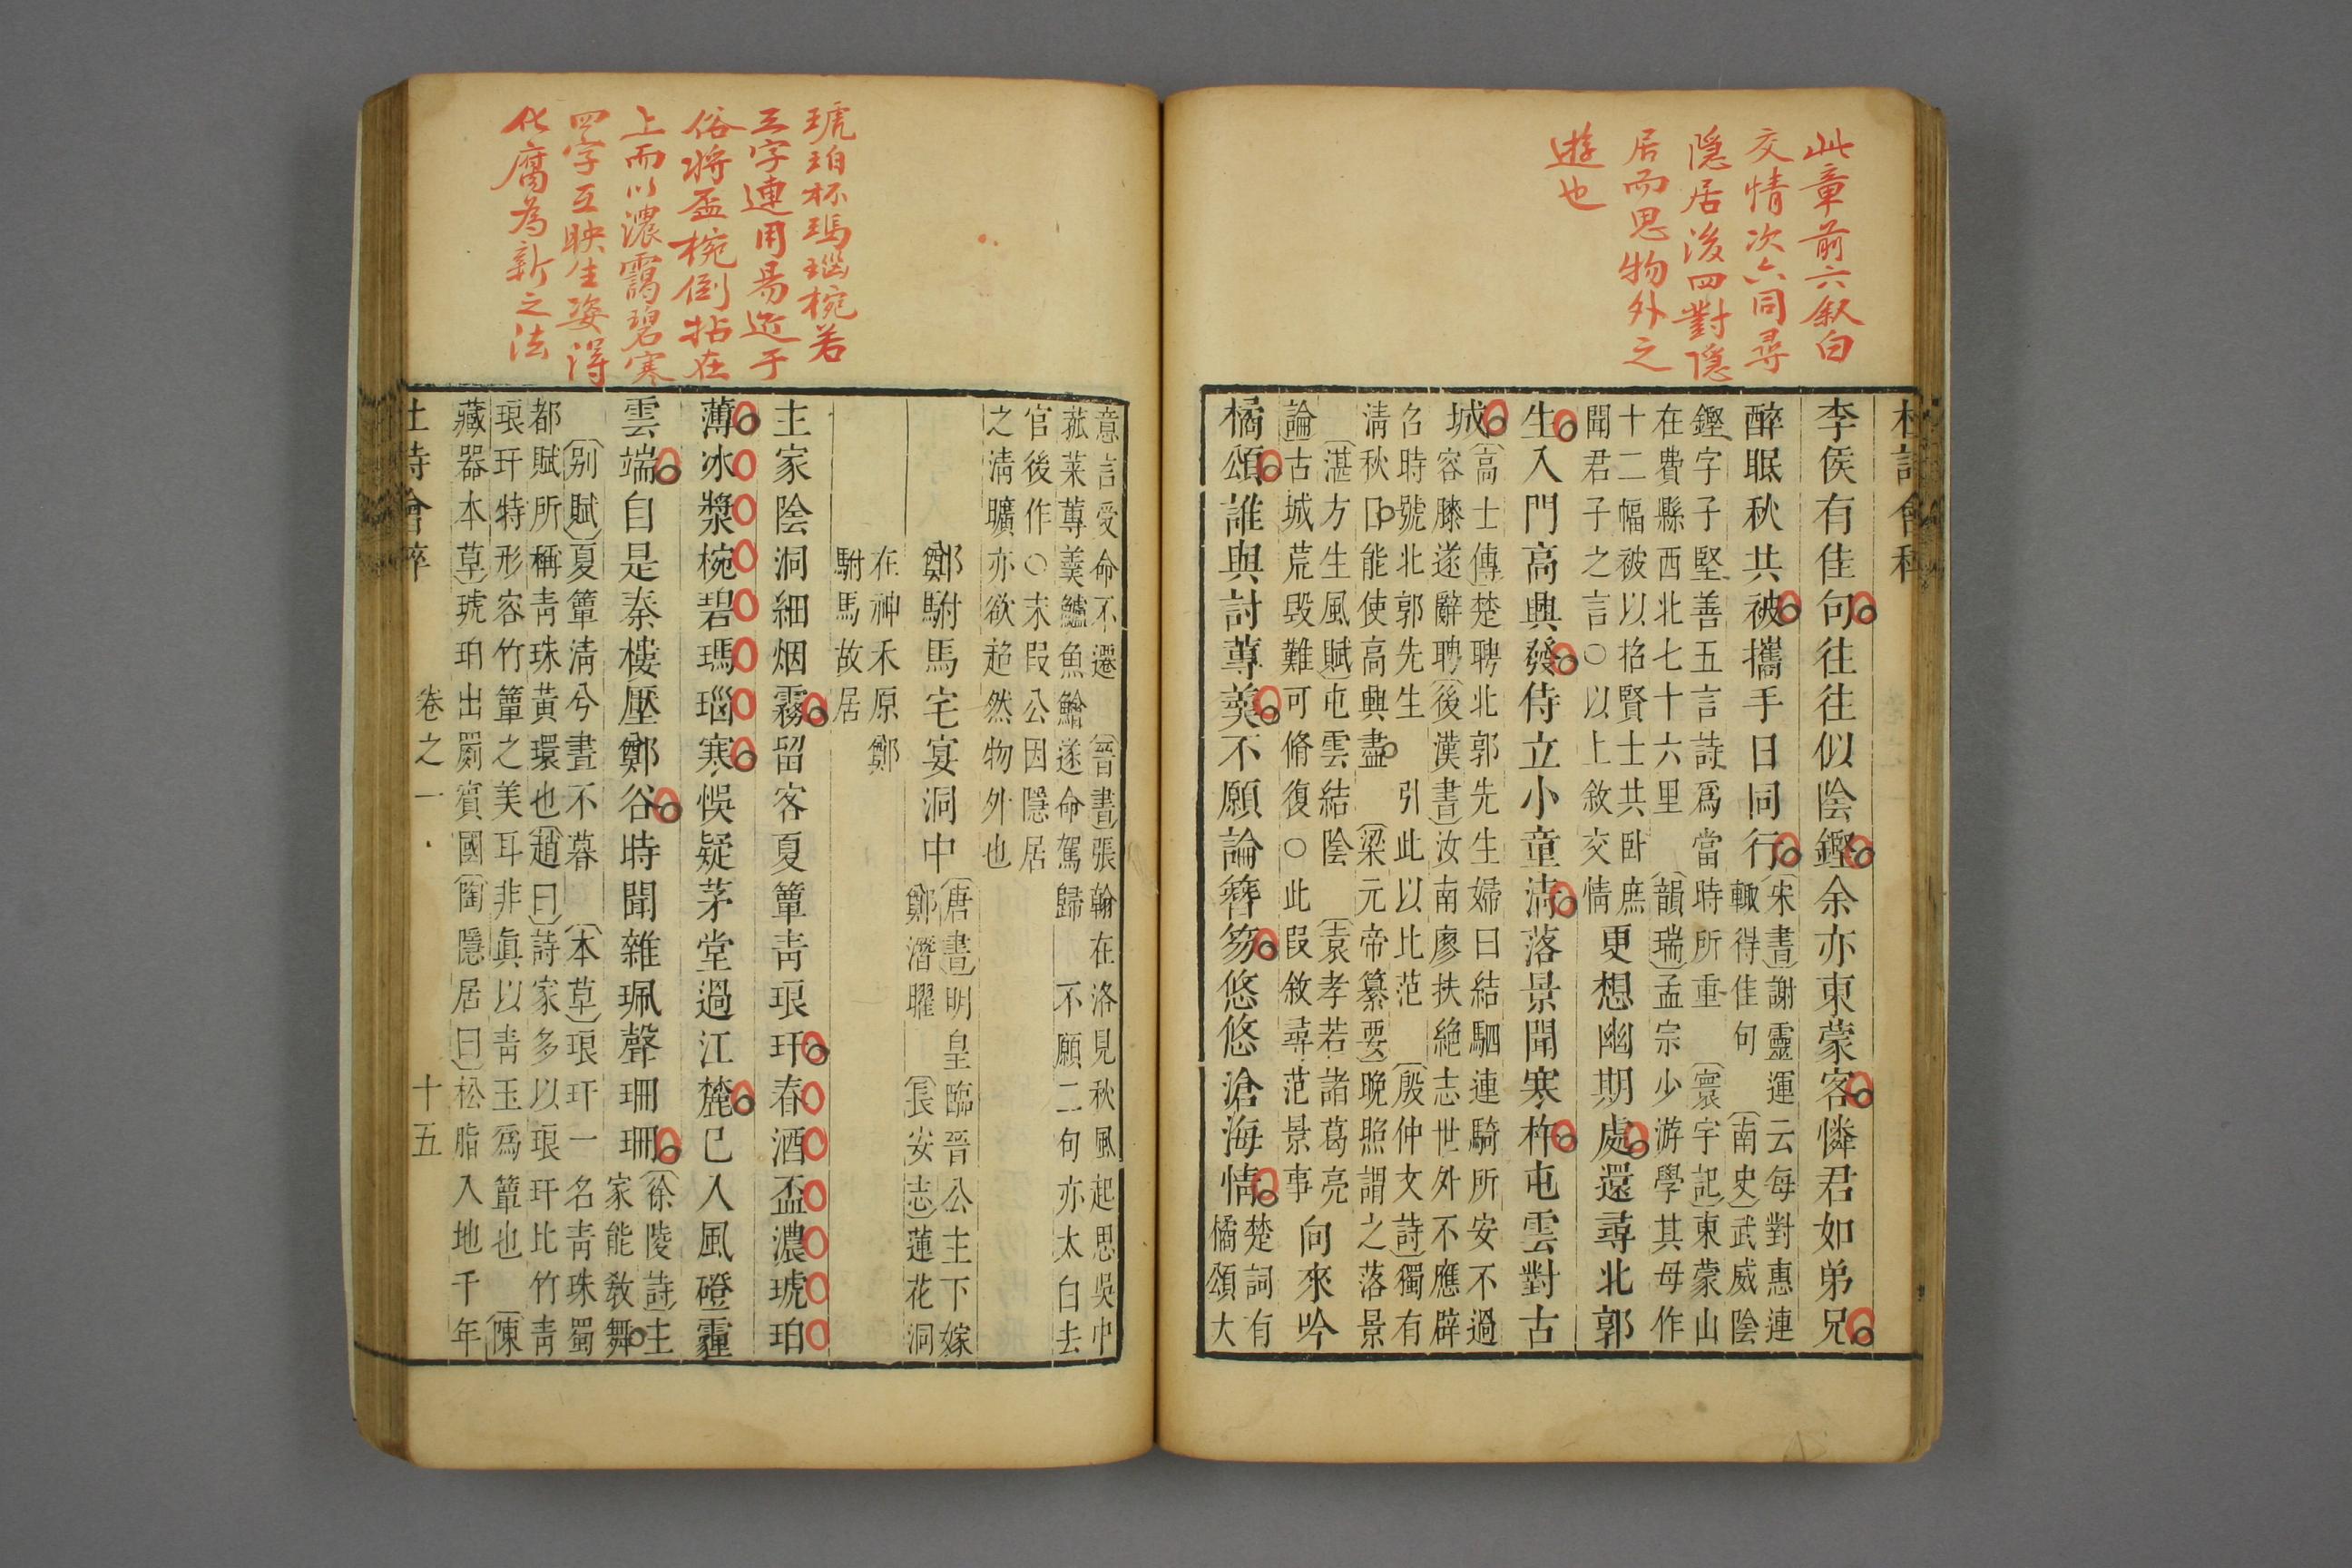 此章前六叙白
交情次六同尋
隱居後四對隱
居而思物外之
遊也
杜詩會稡
李侯有佳句往往似陰鏗余亦東蒙客憐君如弟兄
醉眠秋共被攜手日同行
宋書謝靈運云每對惠連
輒得佳句 南史武威陰
鏗字子堅善五言詩爲當時所重 寰宇記東蒙山
在費縣西北七十六里 韻瑞孟宗少游學其母作
十二幅被以招賢士共臥庶
聞君子之言○以上敘交情
更想幽期處還尋北郭
生入門高興發侍立小童清落景聞寒杵屯雲對古
城
高士傳楚聘北郭先生婦曰結駟連騎所安不過
容膝遂辭聘後漢書汝南廖扶絶志世外不應辟
召時號北郭先生 引此以比范 殷仲文詩獨有
清秋日能使高興盡 梁元帝纂要晚照謂之落景
湛方生風賦屯雲結陰 袁孝若諸葛亮
論古城荒毁難可脩復○此段敘尋范景事
向來吟
橘頌誰與討蓴羹不願論簪笏悠悠滄海情
楚詞有
橘頌大
琥珀杯瑪瑙椀若
三字連用易近于
俗將盃椀倒拈在
上而以濃靄碧寒
四字互映生姿得
化腐為新之法
意言受命不遷 晉書張翰在洛見秋風起思吳中
菰菜蓴羹鱸魚鱠遂命駕歸 不願二句亦太白去
官後作○末段公因隱居
之清曠亦欲超然物外也
鄭駙馬宅宴洞中
唐書明皇臨晉公主下嫁
鄭潛曜 長安志蓮花洞
在神禾原鄭
駙馬故居
主家陰洞細烟霧留客夏簟青琅玕春酒盃濃琥珀
薄冰漿椀碧瑪瑙寒悞疑茅堂過江麓已入風磴霾
雲端自是秦樓壓鄭谷時聞雜珮聲珊珊
徐陵詩主
家能敎舞
别賦夏簟清兮晝不暮 本草琅玕一名青珠蜀
都賦所稱青珠黃環也趙曰詩家多以琅玕比竹靑
琅玕特形容竹簟之美耳非眞以靑玉爲簟也 陳
藏器本草琥珀出罽賓國陶隱居曰松脂入地千年
杜詩會稡 卷之一 十五